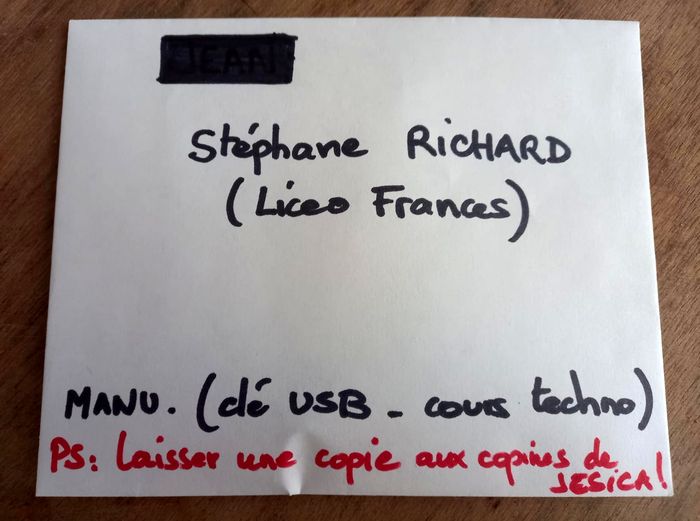 JEAN
Stéphane RICHARD
(Liceo Frances)
MANU. (clé USB - cours techno)
PS: Laisser une copie aux copines de
JESICA!